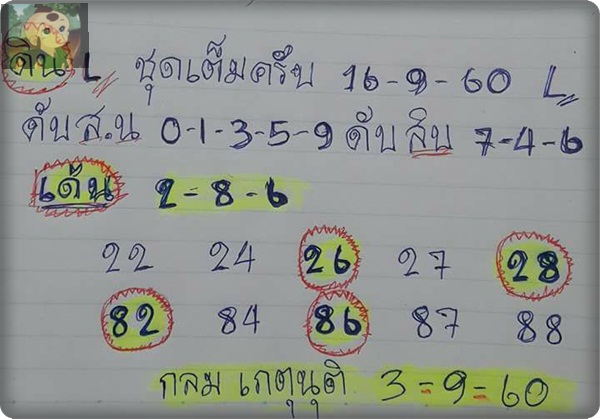 ดิน L ชุดเต็มครับ 16-9-60 L
ดับ ส.น 0-1-3-5-9 ดับ สิบ 7-4-6
เด่น 2-8-6
22 24 26 27 28
82 84 86 87 88
กลม เกตุนุติ 3=9=60